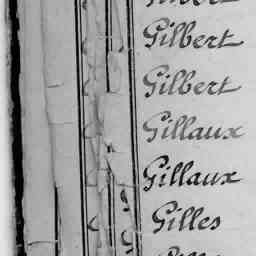 Gilbert
Gilbert
Gillaux
Gillaux
Gilles